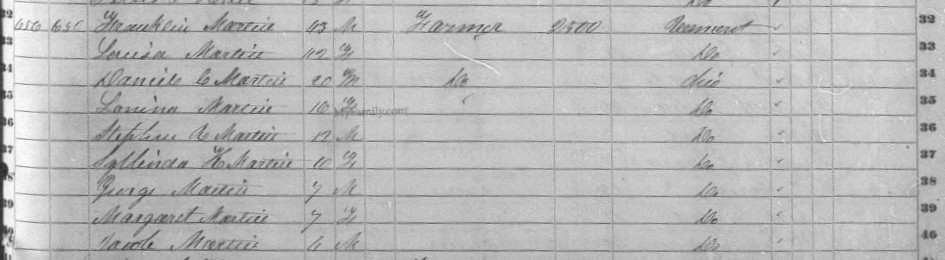 32 656 656 Franklin Martin 43 M Farmer 2500 Vermont 32
33 Louisa Martin 42 F Do 33
34 Daniel C Martin 20 M Do Ohio 34
35 Lovina Martin 16 F Do 35
36 Stephen Martin 12 M Do 36
37 H Martin 10 F Do 37
38 George Martin 7 M Do 38
39 Margaret Martin 7 F Do 39
40 Jacob Martin 6 M Do 40
Family.com